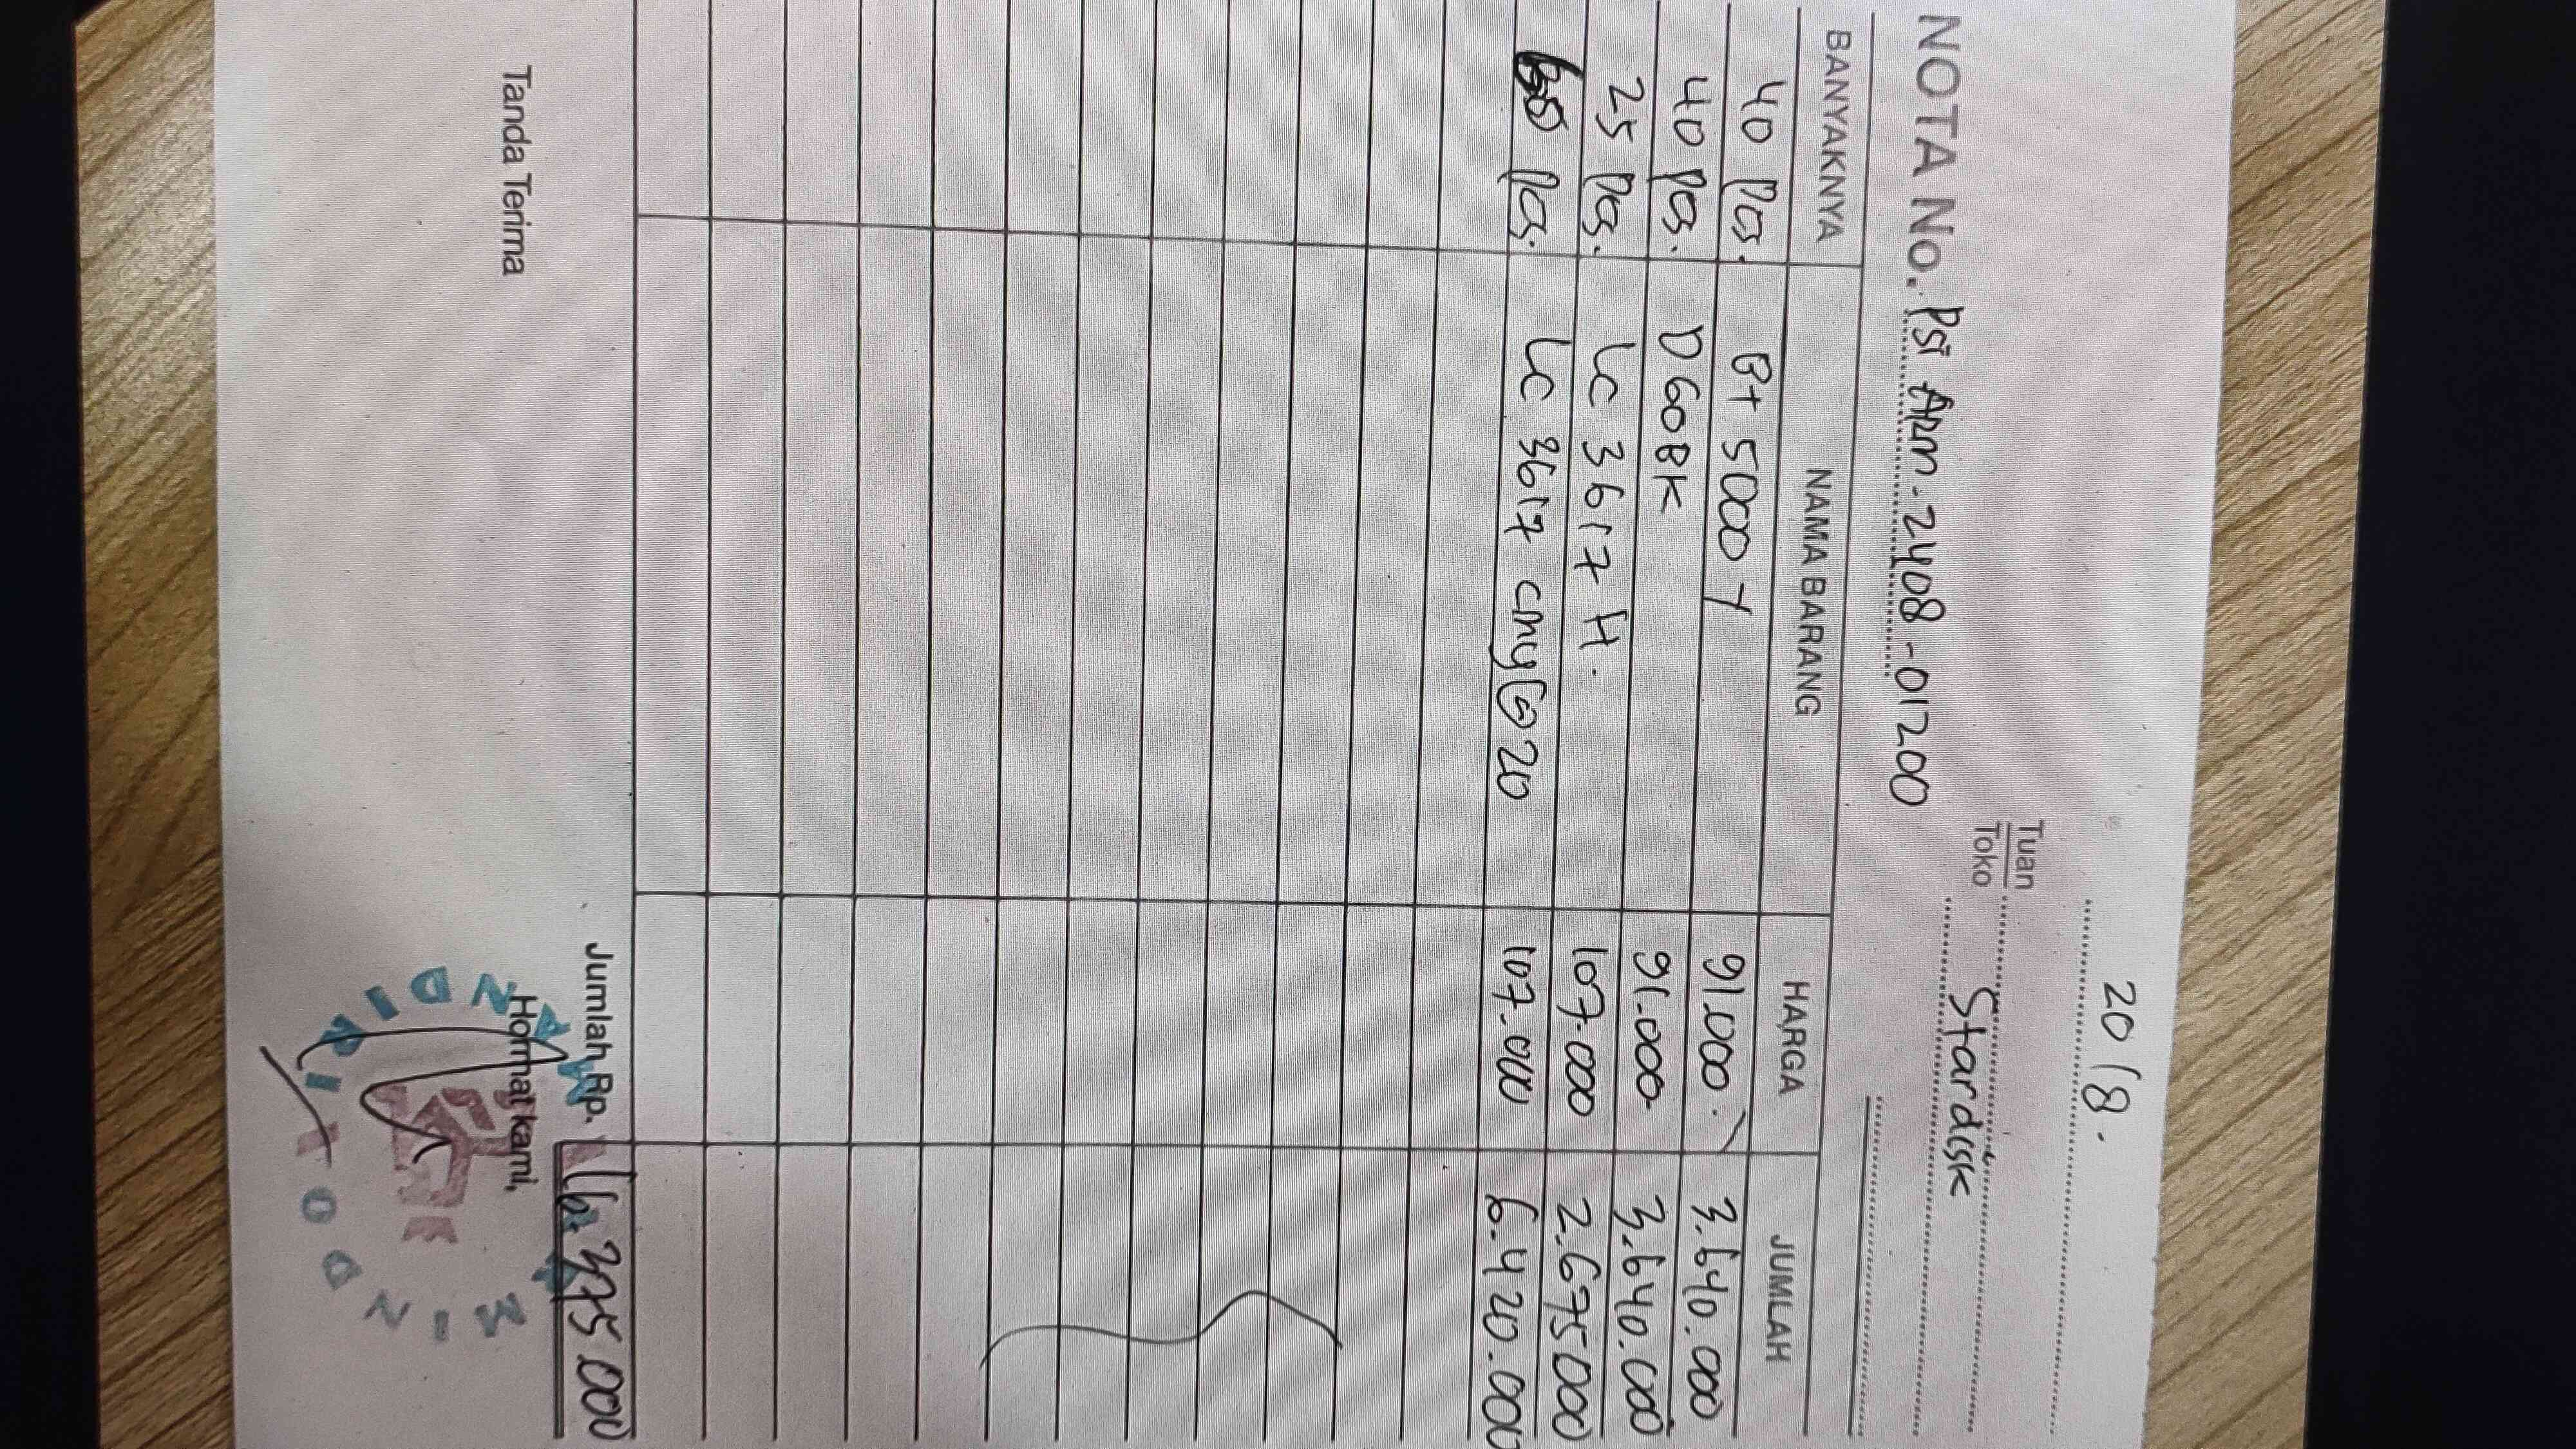 20/8.
Tuan
Toko Stardisk
NOTA No. PSI ARN-2408-01200
BANYAKNYA NAMA BARANG HARGA JUMLAH
40 Pcs. Bt 5000 Y 91.000 3.640.000
40 Pcs. D60BK 91.000 3.640.000
25 Pcs. LC 3617 H. 107.000 2.675.000
60 Pcs. LC 3617 cmy @ 20 107.000 6.420.000
Jumlah Rp. 16.375.000
Tanda Terima Hormat kami,